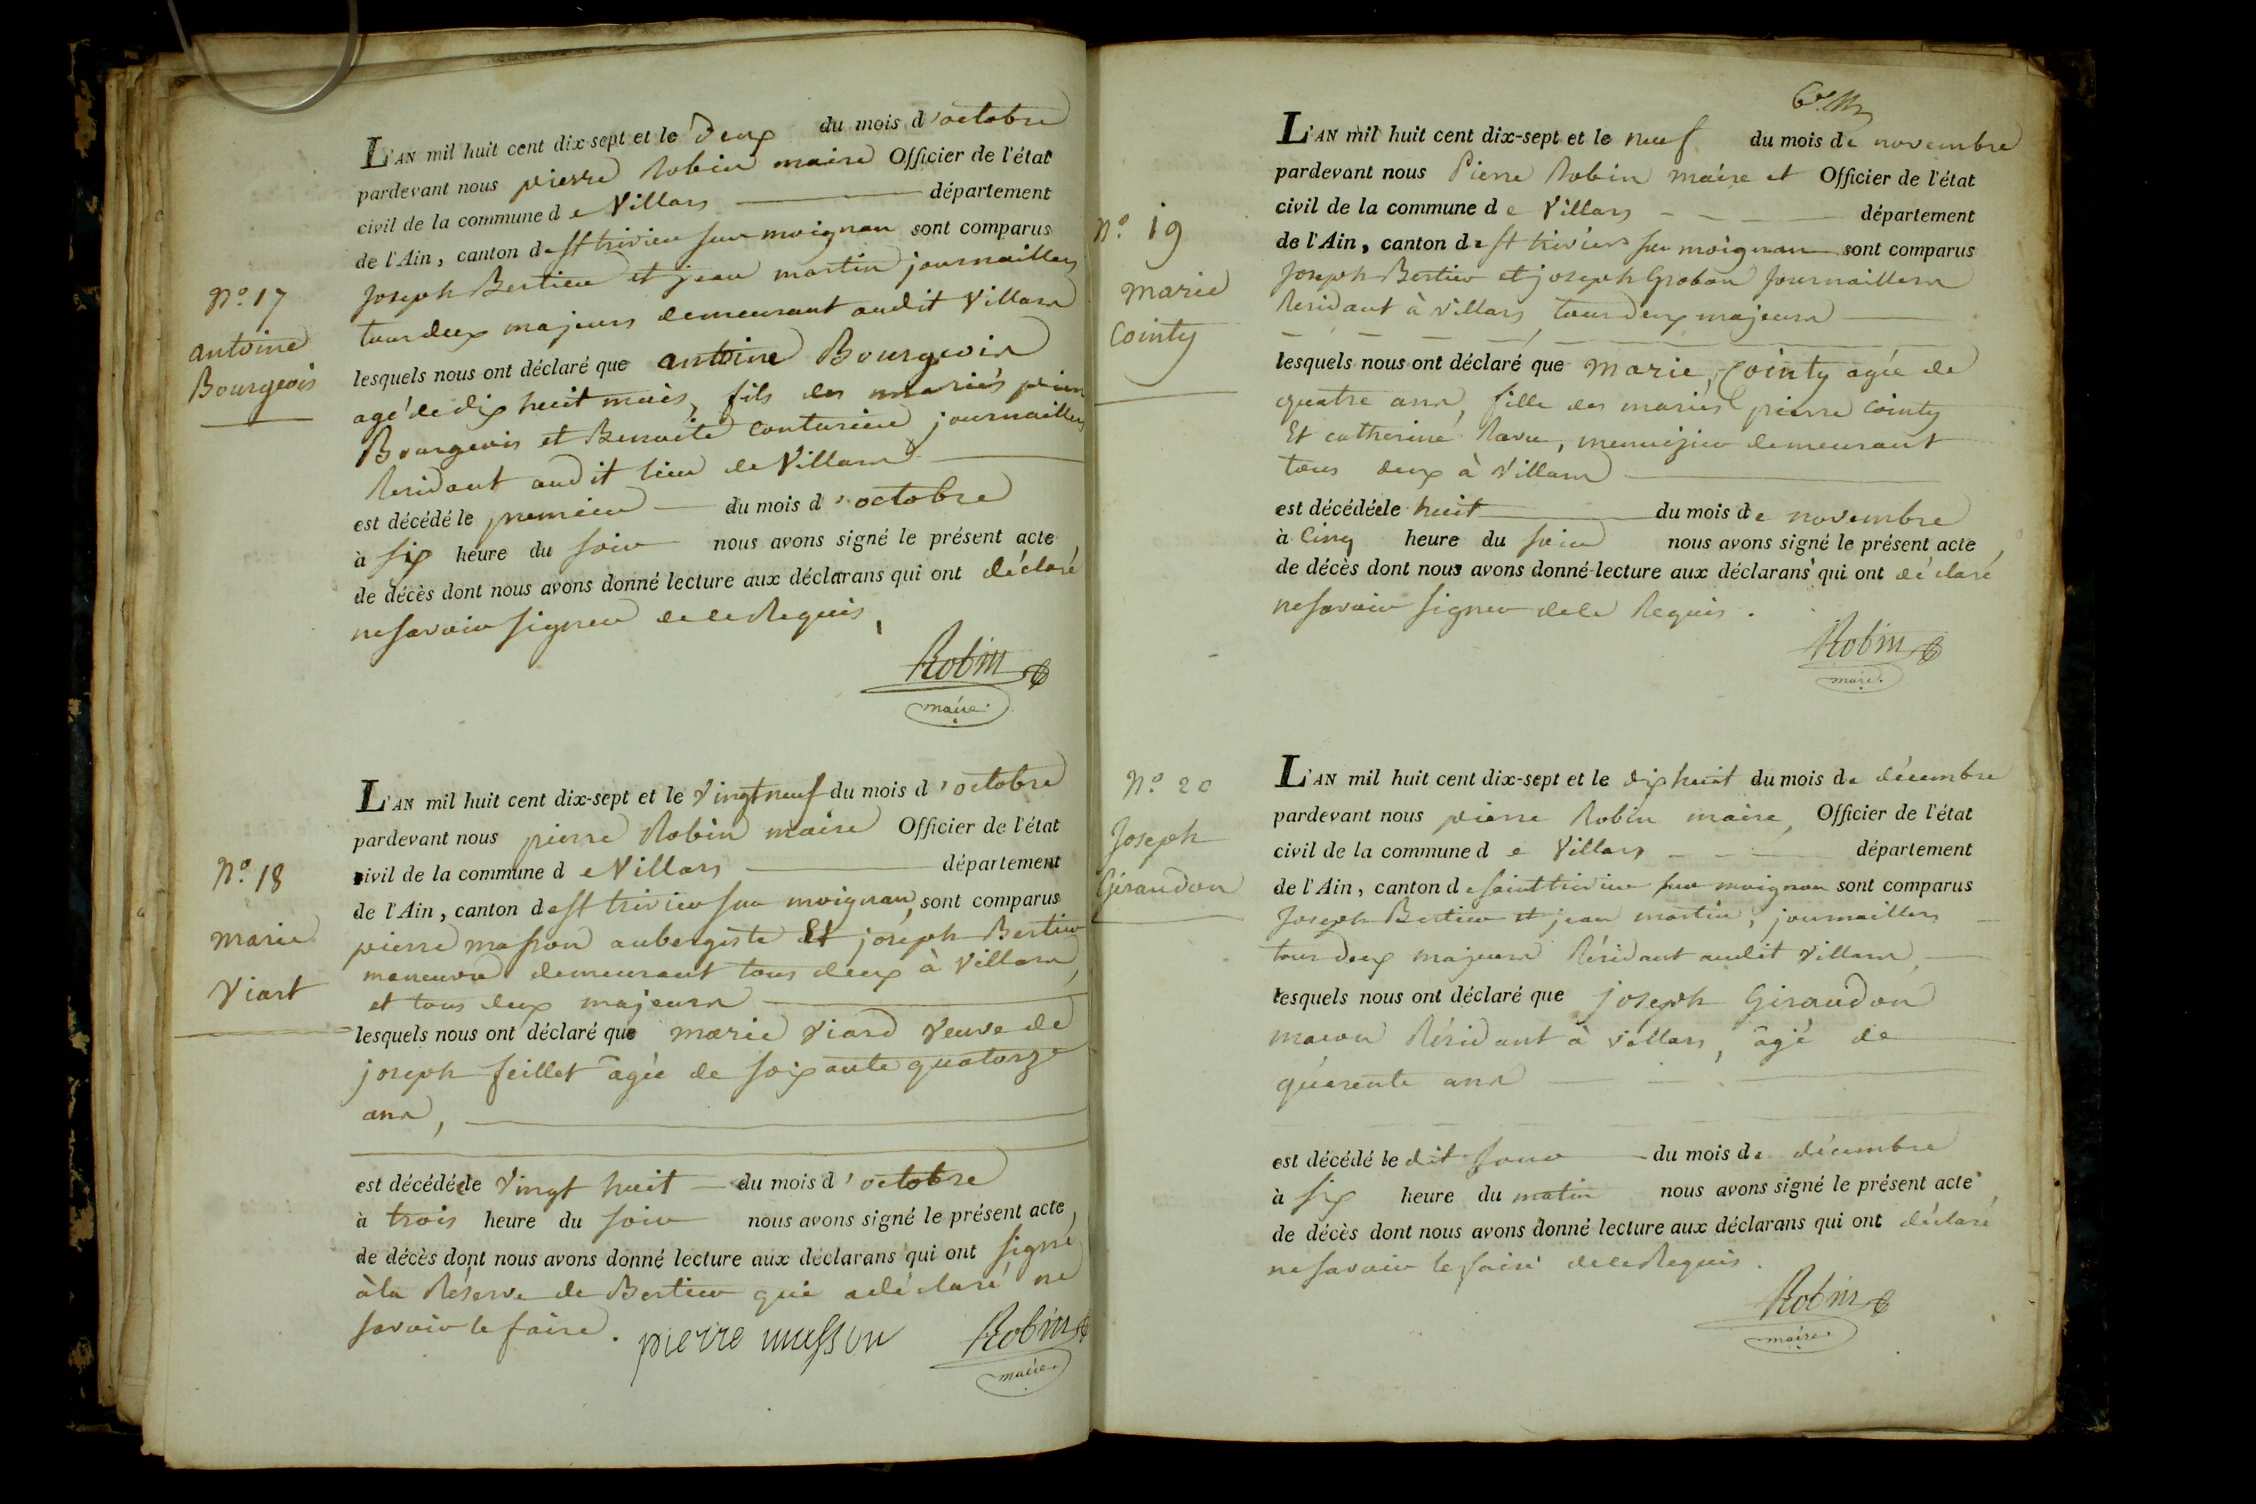 N.o 17
antoine
Bourgeois
L'AN mil huit cent dix-sept et le Deux du mois d'octobre
pardevant nous pierre Robin maire Officier de l'état
civil de la commune de Villars département
de l'Ain, canton de st trivier sur moignan sont comparus
Joseph Bertier et jean martin journaillers
tous deux majeurs demeurant audit Villars
lesquels nous ont déclaré que antoine Bourgeois
agé de dix huit mois, fils des mariés pierre
Bourgeois et Benoite couturier journaillers
Residant audit lieu de Villars
est décédé le premier du mois d'octobre
à six heure du soir nous avons signé le présent acte
de décès dont nous avons donné lecture aux déclarans qui ont déclaré
ne savoir signer de ce Requis,
Robin
maire.
N.o 18
marie
Viart
L'AN mil huit cent dix-sept et le Vingt neuf du mois d'octobre
pardevant nous pierre Robin maire Officier de l'état
civil de la commune de Villars département
de l'Ain, canton de st trivier sur moignan, sont comparus
pierre masson aubergiste Et joseph Bertier
maneuvre demeurant tous deux à Villars,
et tous deux majeurs
lesquels nous ont déclaré que marie Viard Veuve de
joseph feillet âgée de soixante quatorze
ans,
est décédée le Vingt huit du mois d'octobre
à trois heure du soir nous avons signé le présent acte,
de décès dont nous avons donné lecture aux déclarans qui ont signé
à la Réserve de Bertier qui a déclaré ne
savoir le faire. pierre masson Robin
maire.
N.o 19
marie
Cointy
L'AN mil huit cent dix-sept et le neuf du mois de novembre
pardevant nous Pierre Robin maire et Officier de l'état
civil de la commune de Villars département
de l'Ain, canton de st triviers sur moignan sont comparus
Joseph Bertier et joseph Groban Journaillers
Residant à Villars, tous deux majeurs
lesquels nous ont déclaré que Marie, Cointy agée de
quatre ans, fille des mariés pierre Cointy
Et catherine Ravu, menuizier demeurant
tous deux à Villars
est décédée le huit du mois de novembre
à Cinq heure du soir nous avons signé le présent acte,
de décès dont nous avons donné lecture aux déclarans qui ont déclaré
ne savoir signer de ce Requis.
Robin
maire.
N.o 20
Joseph
Giraudon
L'AN mil huit cent dix-sept et le dix huit du mois de décembre
pardevant nous pierre Robin maire, Officier de l'état
civil de la commune de Villars département
de l'Ain, canton de saint trivier sur moignan sont comparus
Joseph Bertier et jean martin, journaillers
tous deux majeurs Résidant audit Villars,
lesquels nous ont déclaré que joseph Giraudon
macon Résidant à villars, âgé de
quarente ans
est décédé le dit jour du mois de décembre
à six heure du matin nous avons signé le présent acte,
de décès dont nous avons donné lecture aux déclarans qui ont déclaré
ne savoir le faire de ce Requis.
Robin
maire.